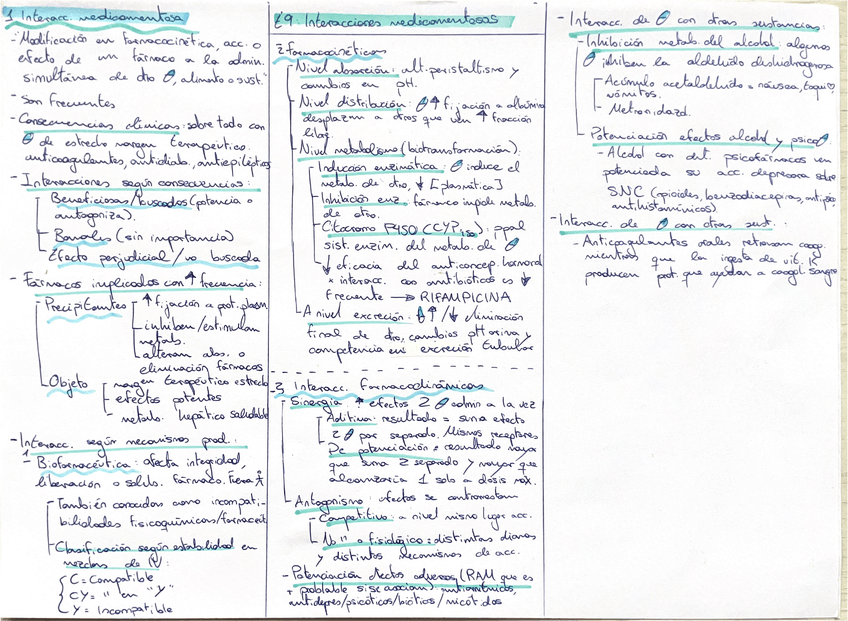 1. Interacc. medicamentosa
- "Modificación en farmacocinética, acc. o
efecto de un fármaco a la admin.
simultánea de otro, alimato o sust."
- Son frecuentes
- Consecuencias clínicas: sobre todo con
de estrecho margen terapéutico.
anticoagulantes, antidiab., antiepilépticos
- Interacciones según consecuencias:
Beneficiosas/buscadas (potencia o
antagoniza).
Banales (sin importancia)
Efecto perjudicial/no buscada
- Fármacos implicados con ↑ frecuencia:
- Precipitantes
↑ fijación a prot. plasm
inhiben/estimulan
metab.
alteran abs. o
eliminación fármacos
Objeto
margen terapéutico estrecho
efectos potentes
metab. hepático saludable
- Interacc. según mecanismos prod.:
1 - Biofarmacéutica: afecta integridad,
liberación o solub. fármaco. Fuera
También conocidas como incompati-
bilidades fisicoquímicas/farmacét.
Clasificación según estabilidad en
mezclas de IV:
C = Compatible
CY = " en "Y"
Y = Incompatible
t9. Interacciones medicamentosas
2 Farmacocinéticas
Nivel absorción: alt. peristaltismo y
cambios en pH.
Nivel distribución: ↑ fijación a albúmina
desplazan a otros que van ↑ fracción
libre.
Nivel metabolismo (biotransformación):
Inducción enzimática: induce el
metab. de otro, ↓ [plasmática]
Inhibición enz.: fármaco impide metab.
de otro.
Citocromo P450 (CYP450): ppal
sist. enzim. del metab. de
↓ eficacia del anticoncep. hormonal
x interacc. con antibióticos es ↓
frecuente → RIFAMPICINA
A nivel excreción: ↑/↓ eliminación
final de otro, cambios pH orina y
competencia en excreción tubular
3 Interacc. farmacodinámicas
Sinergia ↑ efectos 2 admn a la vez
Aditiva: resultado = suma efecto
2 por separado. Mismos receptores
De potenciación: resultado mayor
que suma 2 separado y mayor que
alcanzaría 1 solo a dosis máx.
Antagonismo: efectos se contrarrestan
- Competitivo: a nivel mismo lugar acc.
- No " o fisiológico: distintas dianas
y distintos mecanismos de acc.
- Potenciación efectos adversos (RAM que es
+ probable si se asocian): antiarrítmicos,
antidepres/psicóticos/bióticos/micóticos
- Interacc. de con otras sustancias:
- Inhibición metab. del alcohol: algunos
inhiben la aldehído deshidrogenasa
Acúmulo acetaldehído = náusea, taqui,
vómitos.
- Metronidazol.
Potenciación efectos alcohol y psico
- Alcohol con dat. psicofármacos ven
potenciada su acc. depresora sobre
SNC (opioides, benzodiacepinas, antipsic.
antihistamínicos).
- Interacc. de con otras sust.:
- Anticoagulantes orales retrasan coag.
mientras que la ingesta de vit. K
producen prot. que ayudan a coagul. sangre